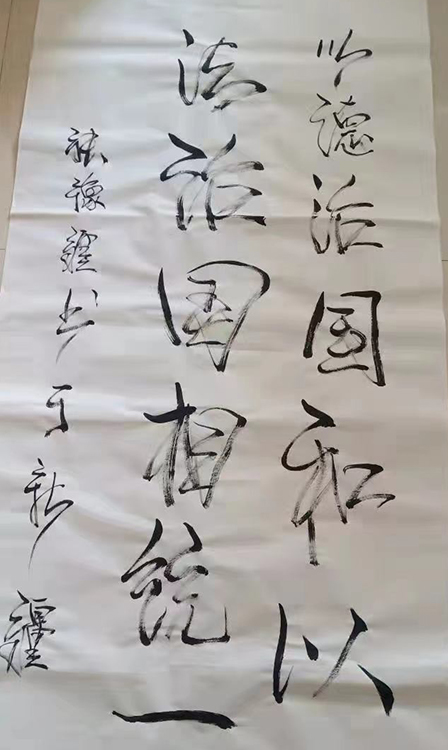 以德治国和以
法治国相统一
豫疆书于新疆